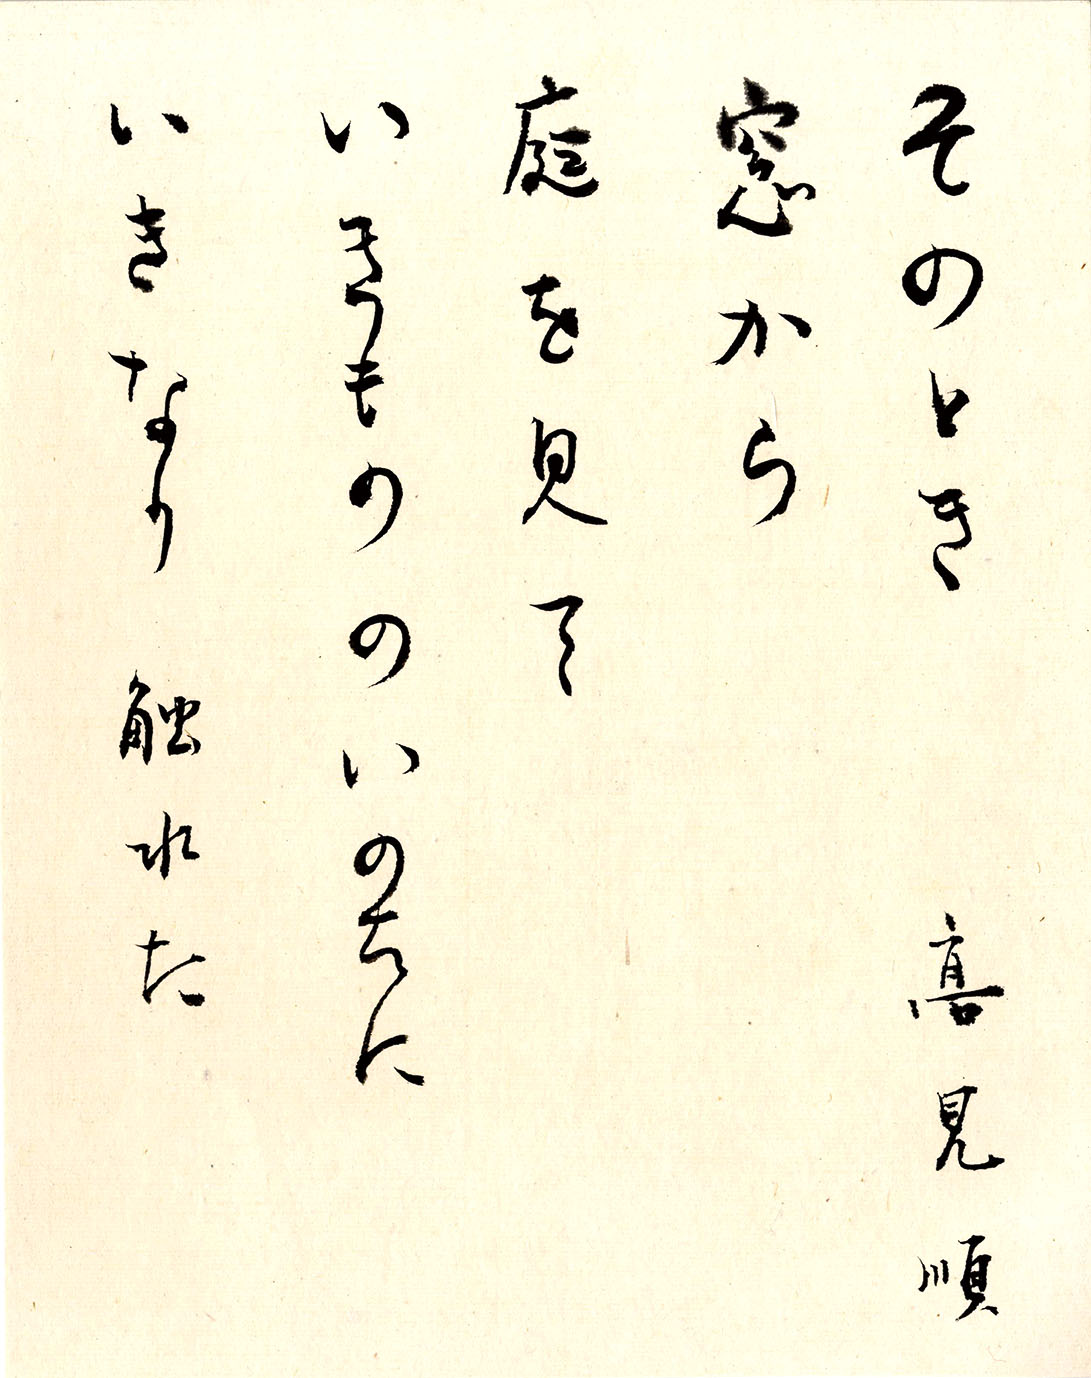 そのとき 高見順
窓から
庭を見て
いきものののいのちに
いきなり 触れた